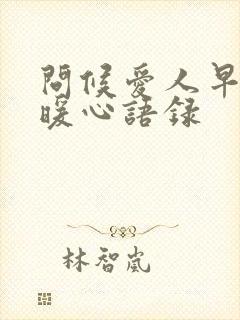 問候愛人早
暖心語錄
林智嵐